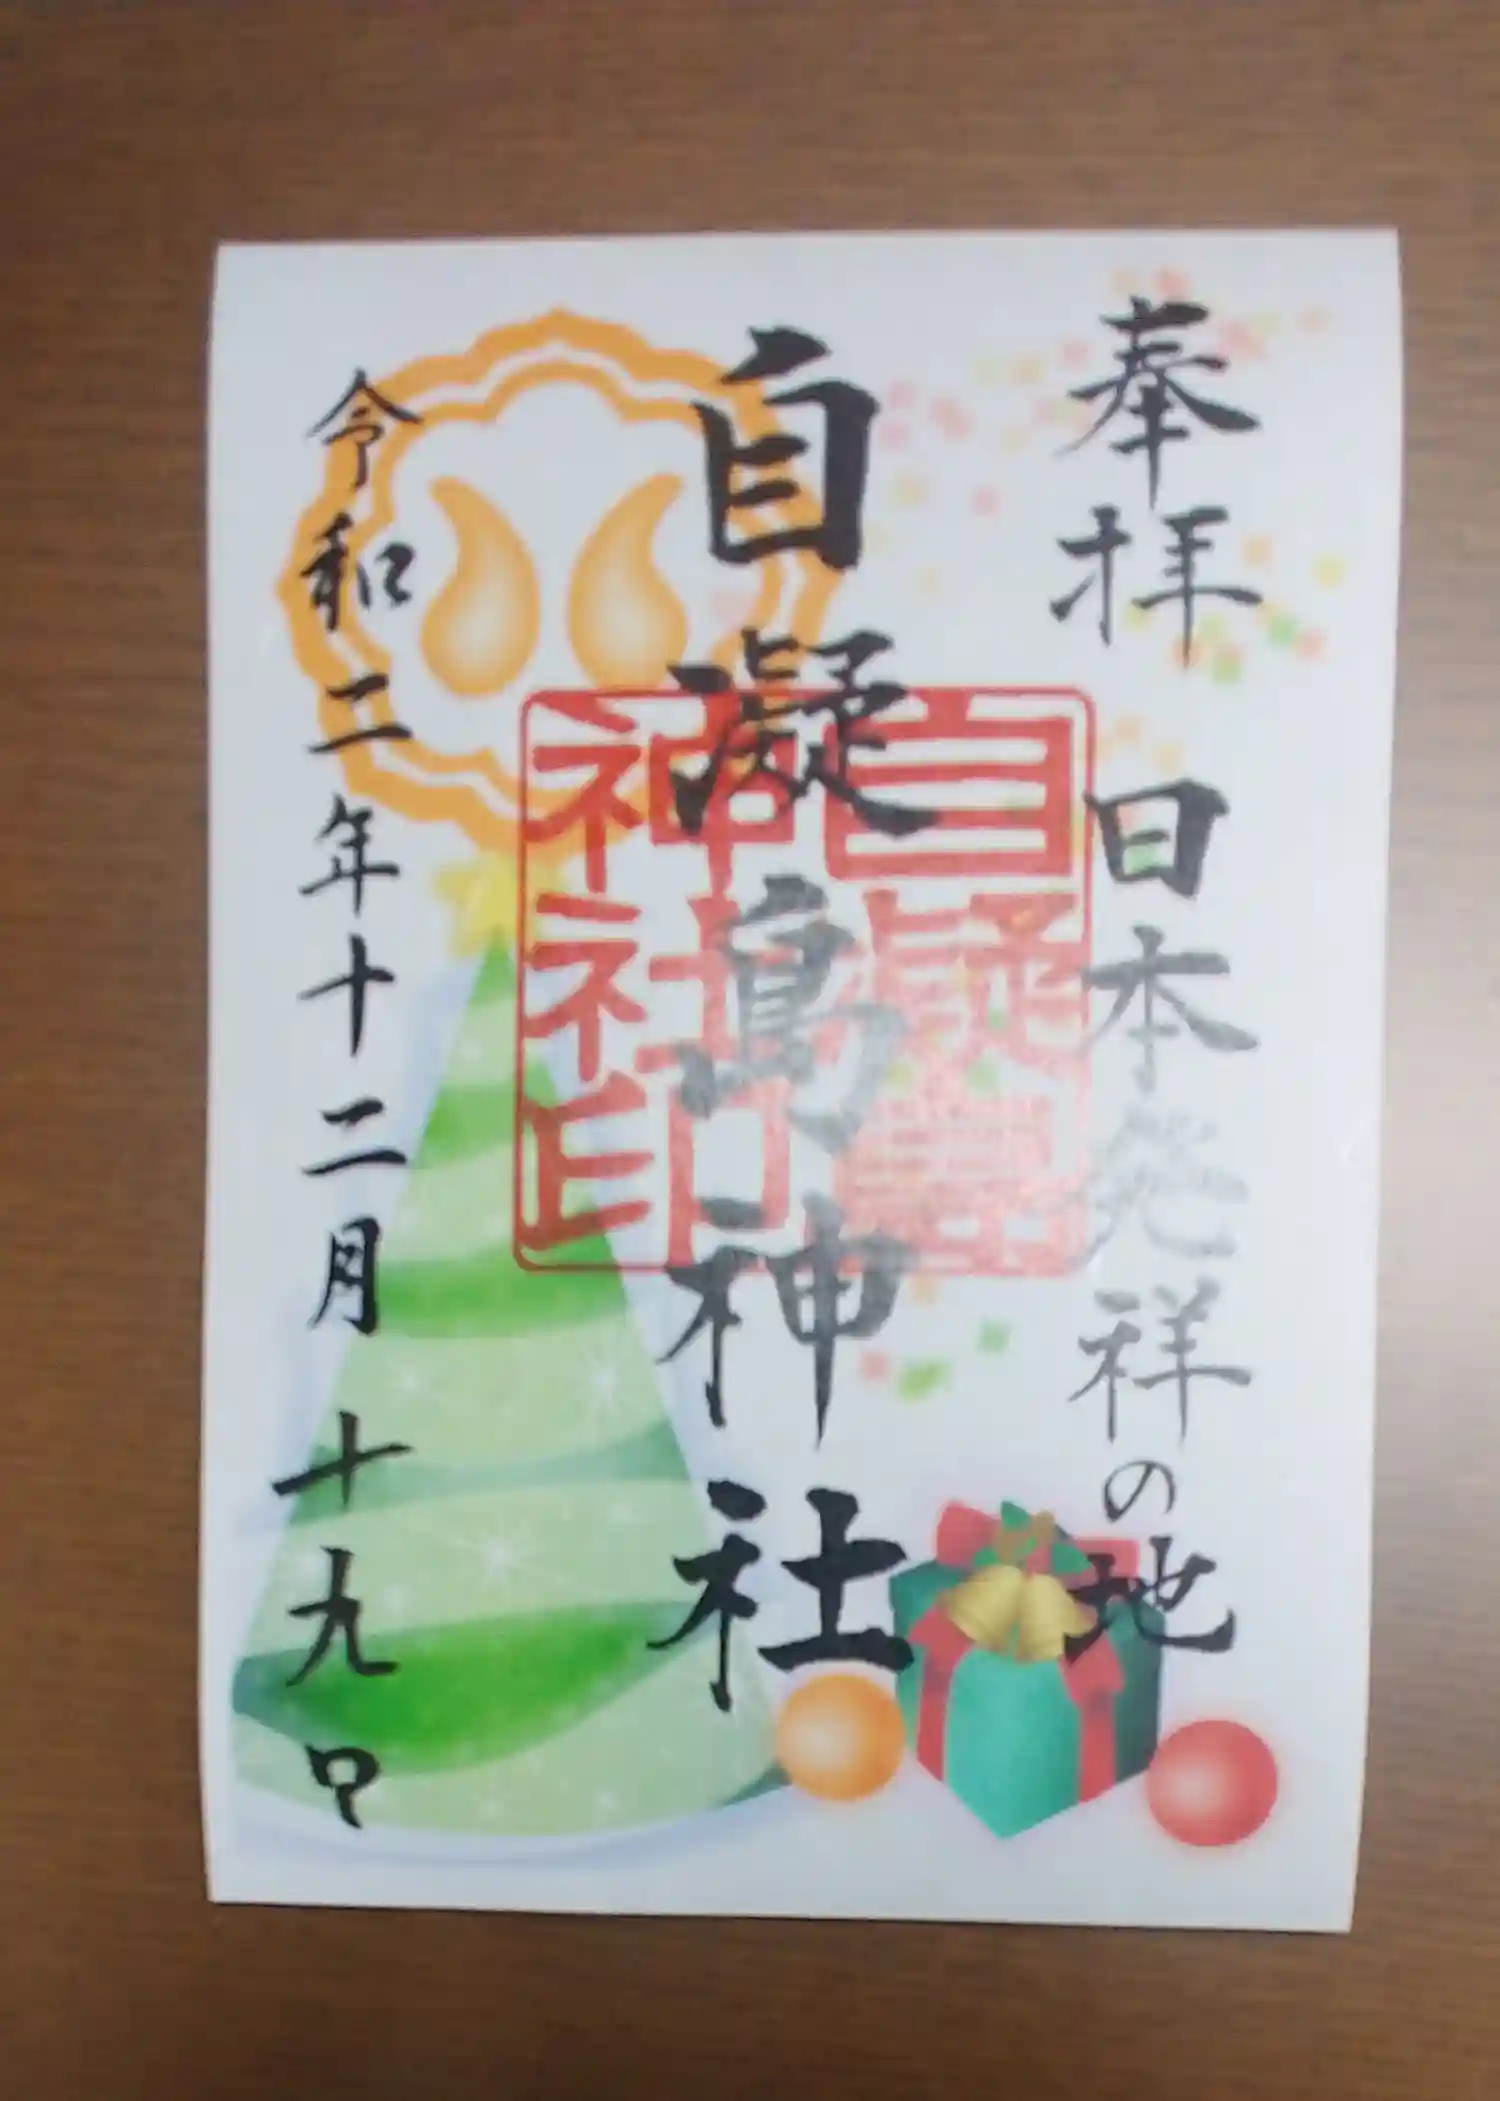 奉拝 日本発祥の地
自凝島神社
自凝島
神社印
令和二年十二月十九日